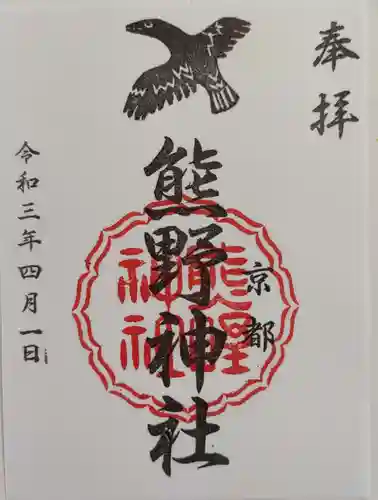 奉拝
熊野神社
京都
令和三年四月一日